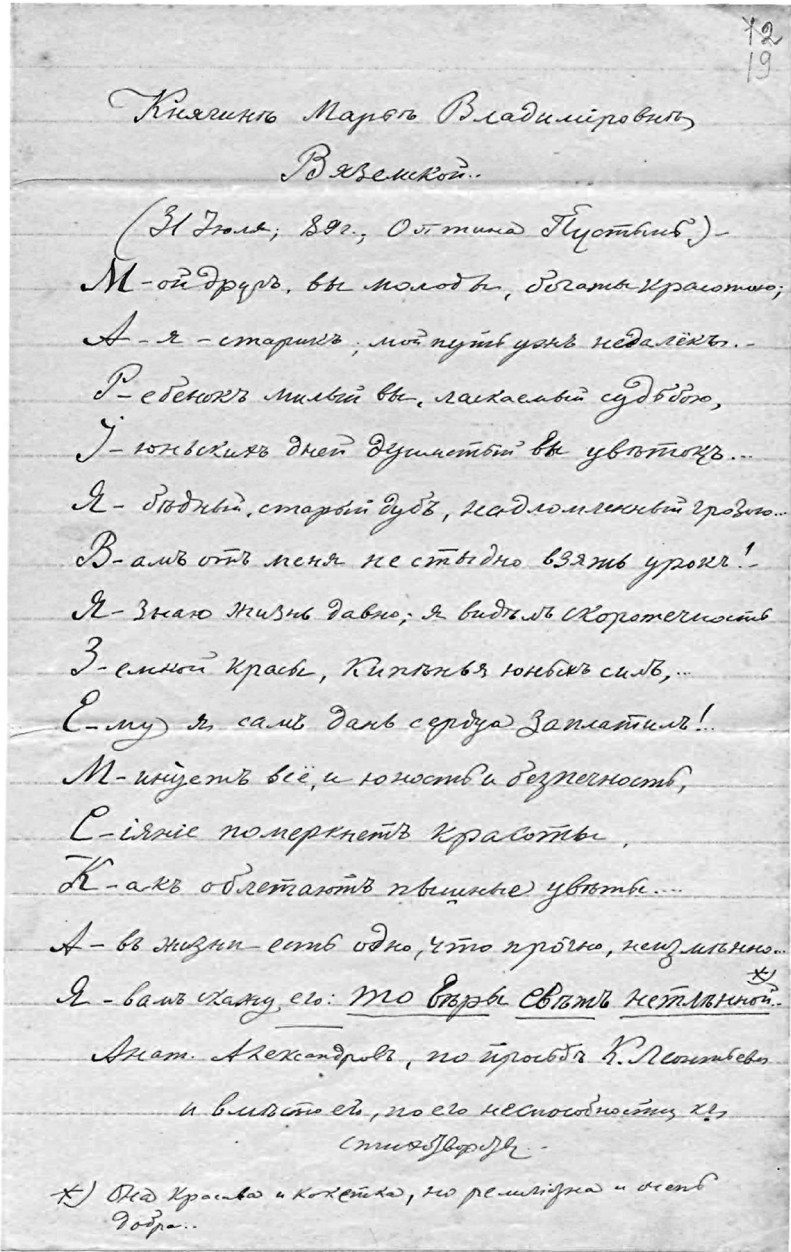 12
19
Княгинѣ Марьѣ Владиміровнѣ
Вяземской..
(31 Iюля; 89г.; Оптина Пустынь) -
М-ой другъ, вы молоды, богаты красотою;
А-я-старикъ; мой путь ужъ недалёкъ.-
Р-ебенокъ милый вы, ласкаемый судьбою,
I-юньскихъ дней душистый вы цвѣтокъ...
Я- бѣдный, старый дубъ, надломленный грозою...
В-амъ отъ меня не стыдно взять урокъ!-
Я-знаю жизнь давно; я видѣлъ скоротечность
З-емной красы, кипѣнья юныхъ силъ,...
Е-му я самъ дань сердца заплатилъ!..
М-инуетъ всё, и юность и безпечность,
С-іяніе померкнетъ красоты,
К-акъ облетаютъ пышные цвѣты....
А-въ жизни есть одно, что прочно, неизмѣнно...
Я-вамъ скажу его: то вѣры свѣтъ нетлѣнной.- *)
Анат. Александровъ, по просьбѣ К. Леонтьева
и вмѣсто его, по его неспособности къ
стихотворству.-
*) Она красива и кокетка, но религіозна и очень
добра..